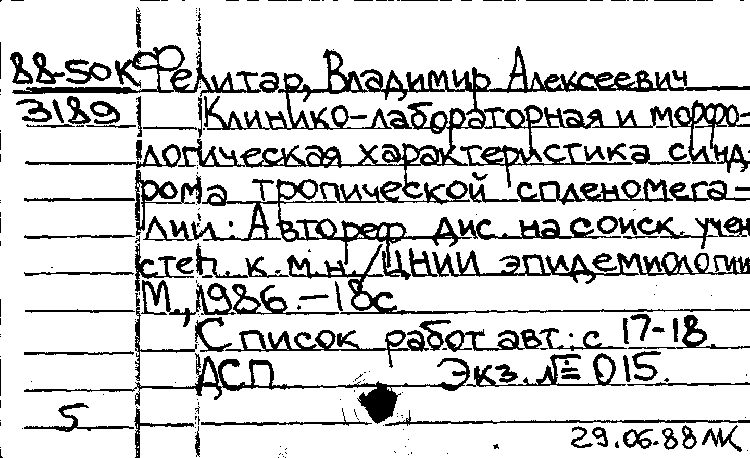 88-50К Фелитар, Владимир Алексеевич
3189 Клинико-лабораторная и морфо-
логическая характеристика синд-
рома тропической спленомега-
лии: Автореф. дис. на соиск. учен.
степ. к.м.н. / ЦНИИ эпидемиологии
М., 1986.-18с.
Список работ авт.: с 17-18.
ДСП. Экз. № 015.
5.
29.06.88 МК